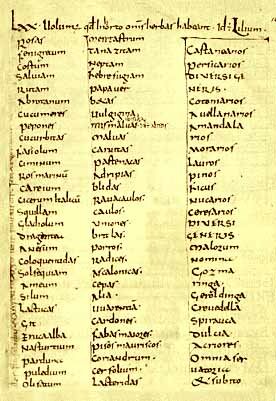 LXX. Volumus quod in horto omnes herbas habeant. Id est Lilium.
Rosas
fenigrecum
Costum
Salviam
Rutam
Abrotanum
Cucumeres
Pepones
Cucurbitas
fasiolum
Ciminum
Rosmarinum
Careium
Cicerum italicum
Squillam
Gladiolum
Dragantea
Anesum
Coloquentidas
Solsequiam
Ameum
Silum
Lactucas
Git
Eruca alba
Nasturtium
parduna
puledium
Olisatum
Tanazitam
Neptam
febrefugiam
papaver
betas
Vulgigina
mismalvas
malvas
Carvitas
pastenacas
Adripias
blidas
Ravacaulos
Caulos
Uniones
britlas
porros
Radices
Ascalonicas
Cepas
Alia
Warentia
Cardones
fabas maiores
pisos mauriscos
Coriandrum
Cerfolium
Lacteridas
Castanearios
Persicarios
DIVERSI GE
NERIS
Cotoniarios
Avellanarios
Amandala
rios
Morarios
Lauros
pinos
ficus
Nucarios
Ceresarios
DIVERSI
GENERIS
malorum
Nomina
Gozma
ringa
Geroldinga
Crevedella
Spirauca
Dulcia
Acriores
Omnia ser
vatoria
et subito